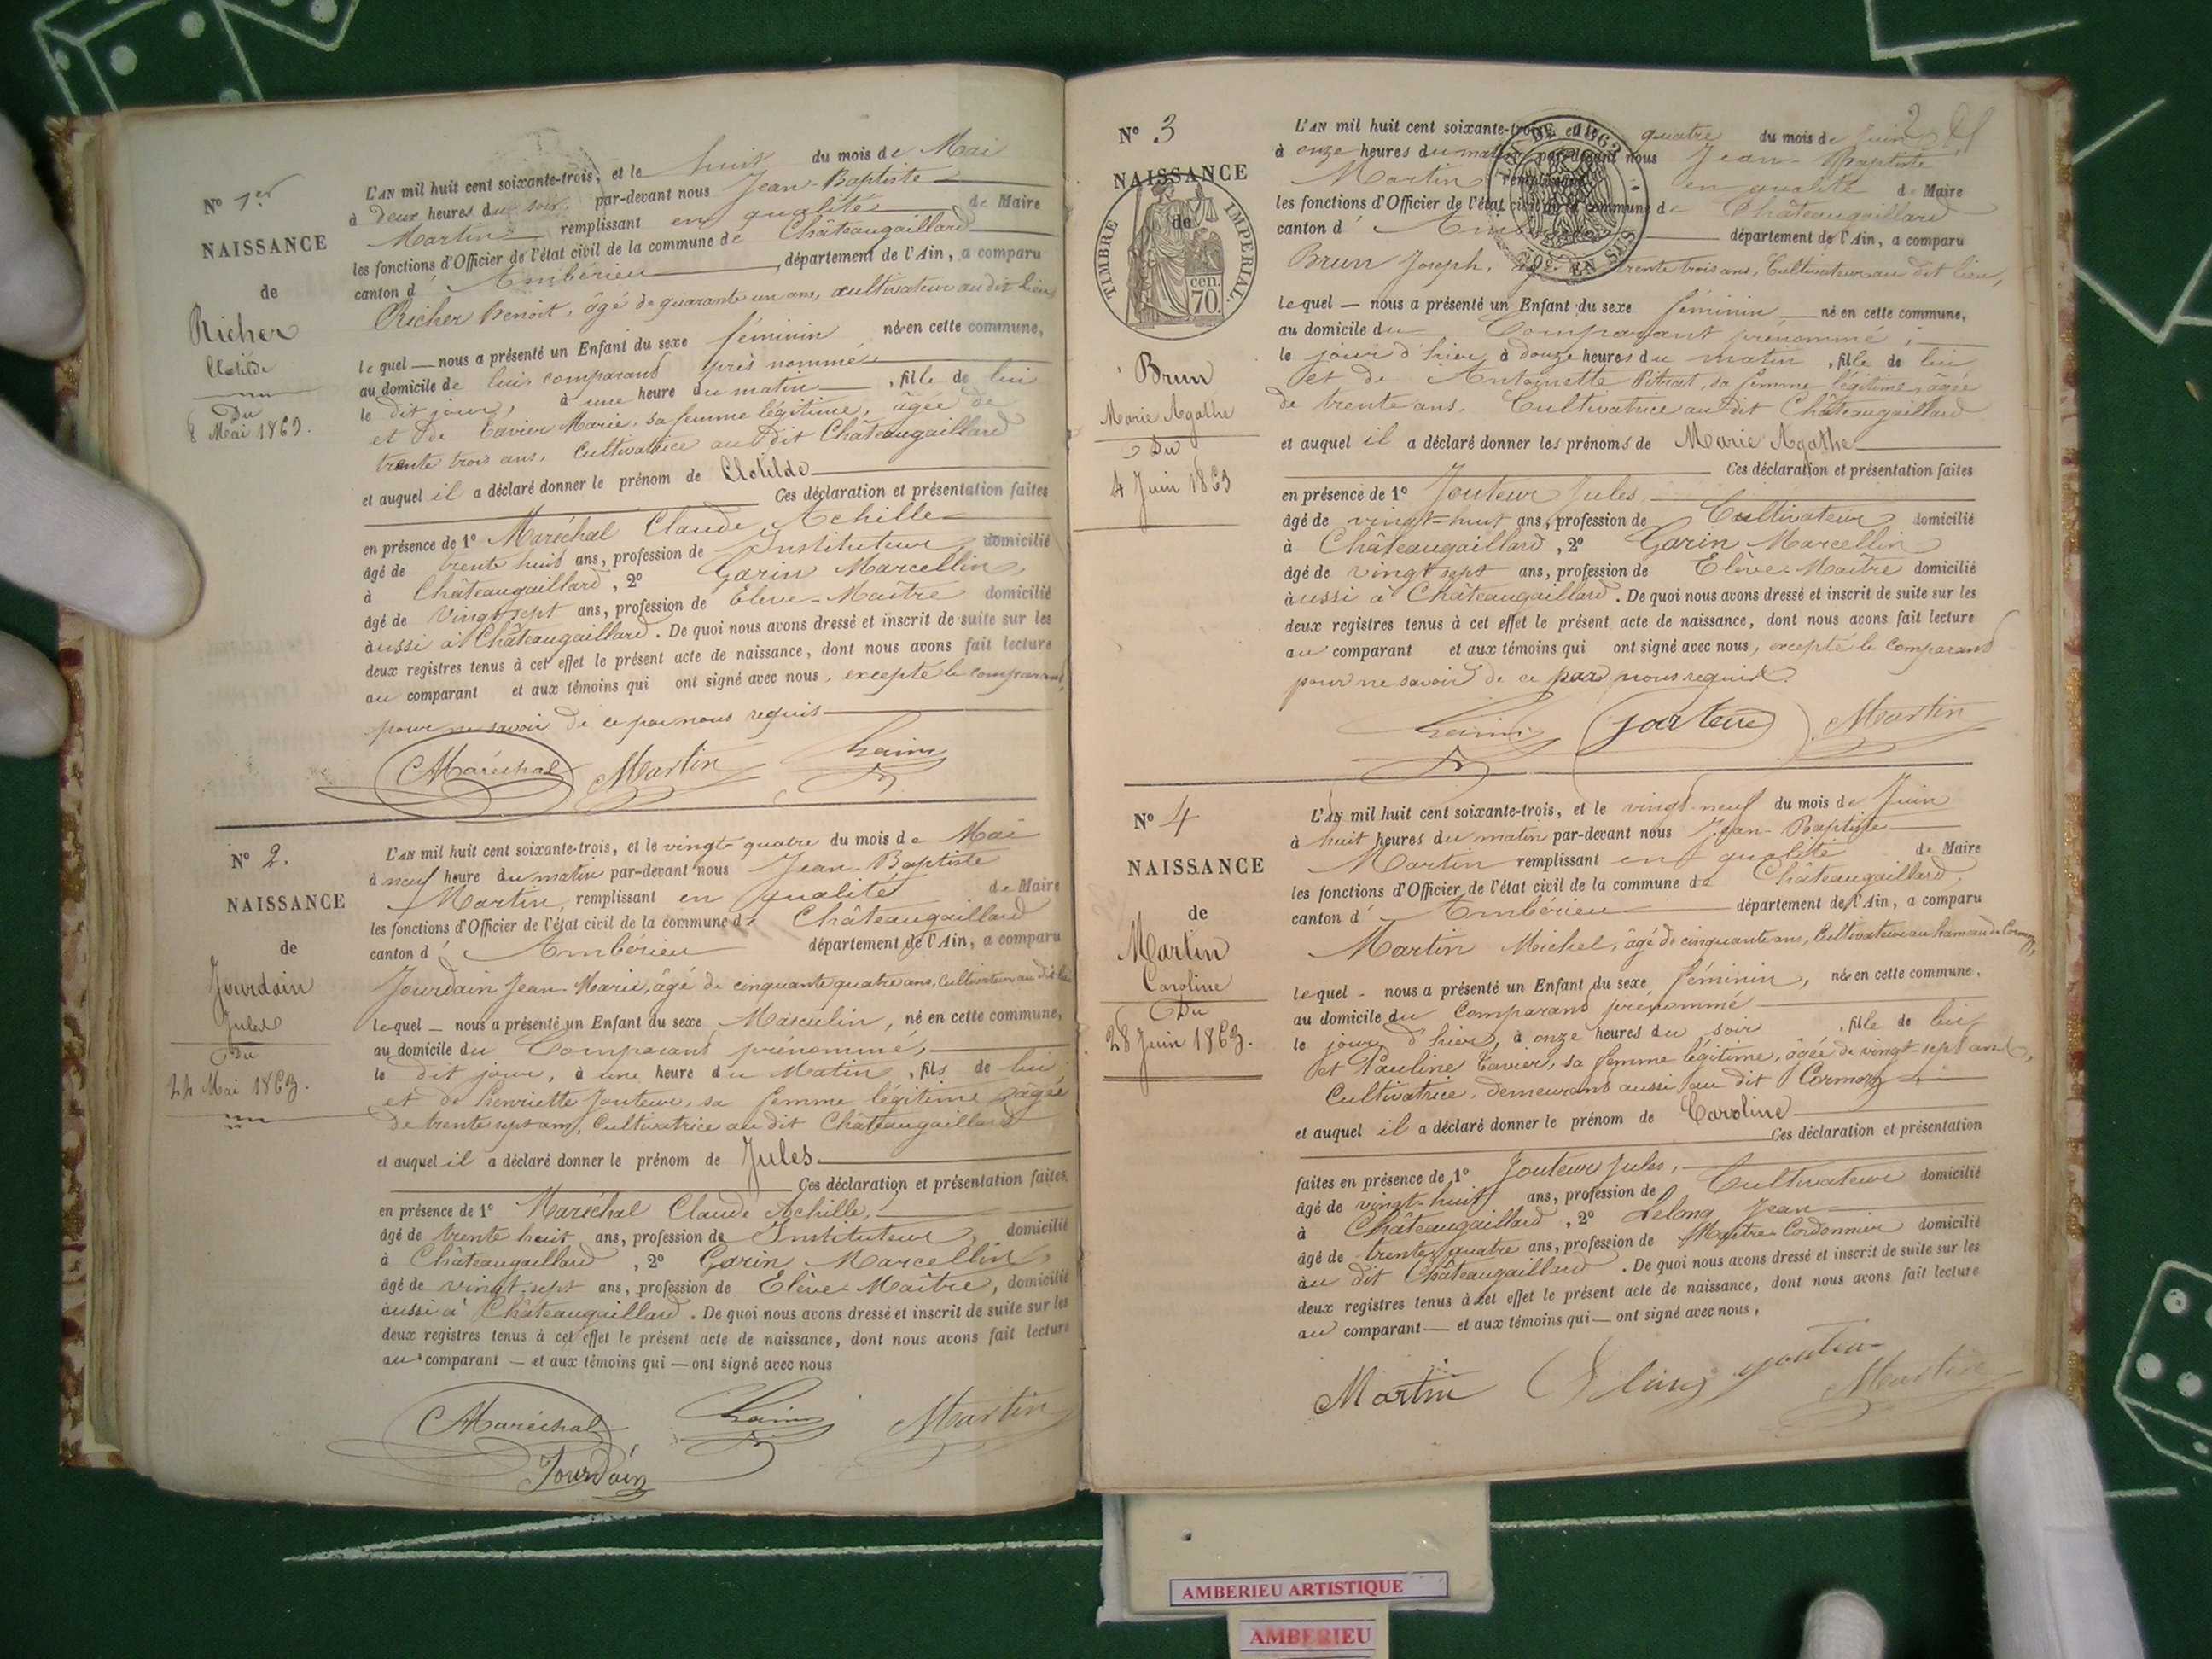 N° 1er
NAISSANCE
de
Richer
Clotilde
Du
8 Mai 1863.
L'AN mil huit cent soixante-trois, et le huit du mois de Mai
à deux heures du soir par-devant nous Jean-Baptiste
Martin remplissant en qualité de Maire
les fonctions d'Officier de l'état civil de la commune de Châteaugaillard
canton d' Ambérieu, département de l'Ain, a comparu
Richer Benoît, âgé de quarante un ans, cultivateur au dit lieu
lequel — nous a présenté un Enfant du sexe féminin né en cette commune,
au domicile de lui comparant près nommé
le dit jour, à une heure du matin, fille de lui
et de Tavier Marie, sa femme légitime, âgée de
trente trois ans, Cultivatrice au dit Châteaugaillard
et auquel il a déclaré donner le prénom de Clotilde
Ces déclaration et présentation faites
en présence de 1° Maréchal Claude Achille
âgé de trente huit ans, profession de Instituteur, domicilié
à Châteaugaillard, 2° Garin Marcellin,
âgé de vingt sept ans, profession de Elève-Maître domicilié
aussi à Châteaugaillard. De quoi nous avons dressé et inscrit de suite sur les
deux registres tenus à cet effet le présent acte de naissance, dont nous avons fait lecture
au comparant et aux témoins qui ont signé avec nous, excepté le comparant,
pour ne savoir de ce par nous requis
Maréchal Martin
N° 2.
NAISSANCE
de
Jourdain
Jules
Du
24 Mai 1863.
L'AN mil huit cent soixante-trois, et le vingt-quatre du mois de Mai
à neuf heure du matin par-devant nous Jean-Baptiste
Martin, remplissant en qualité de Maire
les fonctions d'Officier de l'état civil de la commune de Châteaugaillard
canton d' Ambérieu département de l'Ain, a comparu
Jourdain Jean-Marie, âgé de cinquante quatre ans, Cultivateur au dit lieu
lequel — nous a présenté un Enfant du sexe Masculin, né en cette commune,
au domicile du Comparant prénommé,
le dit jour, à une heure du Matin, fils de lui
et de henriette Jouteur, sa femme légitime âgée
de trente sept ans, Cultivatrice au dit Châteaugaillard
et auquel il a déclaré donner le prénom de Jules
Ces déclaration et présentation faites
en présence de 1° Maréchal Claude Achille,
âgé de trente huit ans, profession de Instituteur, domicilié
à Châteaugaillard, 2° Garin Marcellin,
âgé de vingt-sept ans, profession de Elève-Maître, domicilié
aussi à Châteaugaillard. De quoi nous avons dressé et inscrit de suite sur les
deux registres tenus à cet effet le présent acte de naissance, dont nous avons fait lecture
au comparant — et aux témoins qui — ont signé avec nous
Maréchal Martin
Jourdain
N° 3
NAISSANCE
de
TIMBRE IMPERIAL.
cen.
70.
Brun
Marie Agathe
Du
4 Juin 1863
L'AN mil huit cent soixante-trois, et le quatre du mois de Juin
à onze heures du matin par-devant nous Jean-Baptiste
Martin remplissant en qualité de Maire
les fonctions d'Officier de l'état civil de la commune de Châteaugaillard
canton d' département de l'Ain, a comparu
Brun Joseph, trente trois ans, Cultivateur au dit lieu,
lequel — nous a présenté un Enfant du sexe féminin né en cette commune,
au domicile du Comparant prénommé,
le jour d'hier à douze heures du matin, fille de lui
et de Antoinette Pitrat, sa femme légitime, âgée
de trente ans, Cultivatrice au dit Châteaugaillard
et auquel il a déclaré donner les prénoms de Marie Agathe
Ces déclaration et présentation faites
en présence de 1° Jouteur Jules
âgé de vingt-huit ans, profession de Cultivateur domicilié
à Châteaugaillard, 2° Garin Marcellin
âgé de vingt sept ans, profession de Elève-Maître domicilié
aussi à Châteaugaillard. De quoi nous avons dressé et inscrit de suite sur les
deux registres tenus à cet effet le présent acte de naissance, dont nous avons fait lecture
au comparant et aux témoins qui ont signé avec nous, excepté le comparant
pour ne savoir de ce par nous requis.
jouteur Martin
N° 4
NAISSANCE
de
Martin
Caroline
Du
28 Juin 1863.
L'AN mil huit cent soixante-trois, et le vingt-neuf du mois de Juin
à huit heures du matin par-devant nous Jean-Baptiste
Martin remplissant en qualité de Maire
les fonctions d'Officier de l'état civil de la commune de Châteaugaillard,
canton d' Ambérieu département de l'Ain, a comparu
Martin Michel, âgé de cinquante ans, Cultivateur au hameau de Cormoz,
lequel - nous a présenté un Enfant du sexe féminin, né en cette commune,
au domicile du Comparant prénommé
le jour d'hier, à onze heures du soir, fille de lui
et Pauline Tavier, sa femme légitime, âgée de vingt-sept ans,
Cultivatrice, demeurant aussi au dit Cormoz
et auquel il a déclaré donner le prénom de Caroline
Ces déclaration et présentation
faites en présence de 1° Jouteur Jules,
âgé de vingt-huit ans, profession de Cultivateur domicilié
à Châteaugaillard, 2° Lelong Jean
âgé de trente quatre ans, profession de Maître Cordonnier domicilié
au dit Châteaugaillard. De quoi nous avons dressé et inscrit de suite sur les
deux registres tenus à cet effet le présent acte de naissance, dont nous avons fait lecture
au comparant — et aux témoins qui — ont signé avec nous,
Martin jouteur
Martin
AMBERIEU ARTISTIQUE
AMBERIEU